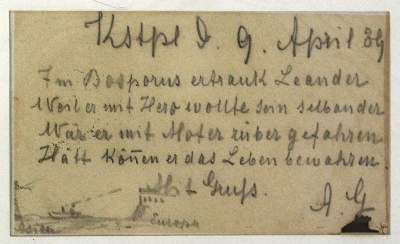 Kstpl d. 9. April 89
Im Bosporus ertrank Leander
Weil er mit Hero wollte sein selbander
Wär er mit Moser rüber gefahren
Hätt können er das Leben bewahren.
Mit Gruß.
A. G
Asien
Europa